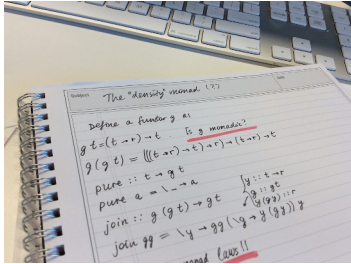 Subject
Date
The "density" monad (?)
Define a functor g as
g t=(t→r)→t. Is g monadic?
g(g t) = (((t→r)→t)→r)→(t→r)→t
pure :: t→g t
pure a = \_→a
join :: g(g t)→g t
join gg = \y→gg(\g→y(g y)) y
y :: t→r
g :: g t
y(g y) :: r
monad laws!!